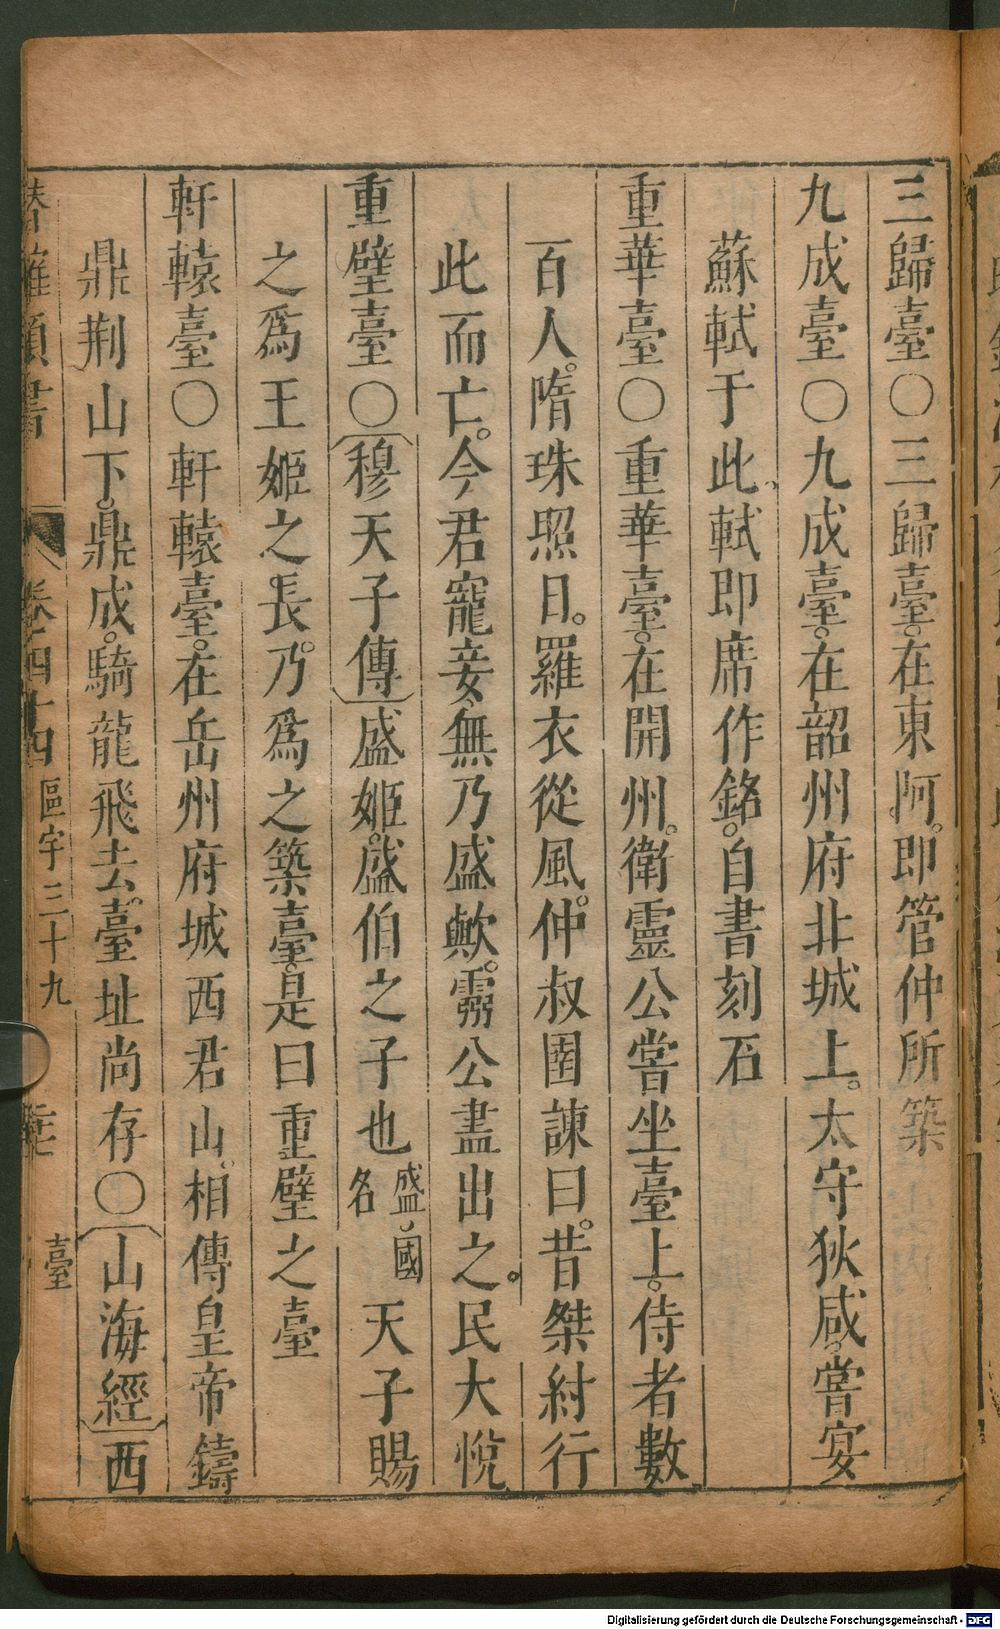 三歸臺○三歸臺。在東阿。即管仲所築
九成臺○九成臺。在韶州府北城上。太守狄咸、嘗宴
蘇軾于此、軾即席作銘。自書刻石
重華臺○重華臺。在開州。衛靈公嘗坐臺上。侍者數
百人。隋珠照日。羅衣從風。仲叔圉諫曰。昔桀紂行
此而亡。今君寵妾、無乃盛歟。靈公盡出之。民大悅
重璧臺○〔穆天子傳〕盛姬。盛伯之子也盛、國名天子賜
之為王姬之長。乃為之築臺。是曰重璧之臺
軒轅臺○軒轅臺。在岳州府城西君山。相傳皇帝鑄
鼎荆山下。鼎成。騎龍飛去。臺址尚存○〔山海經〕西
類書 卷四十四 區宇三十九 臺
Digitalisierung gefördert durch die Deutsche Forschungsgemeinschaft - DFG